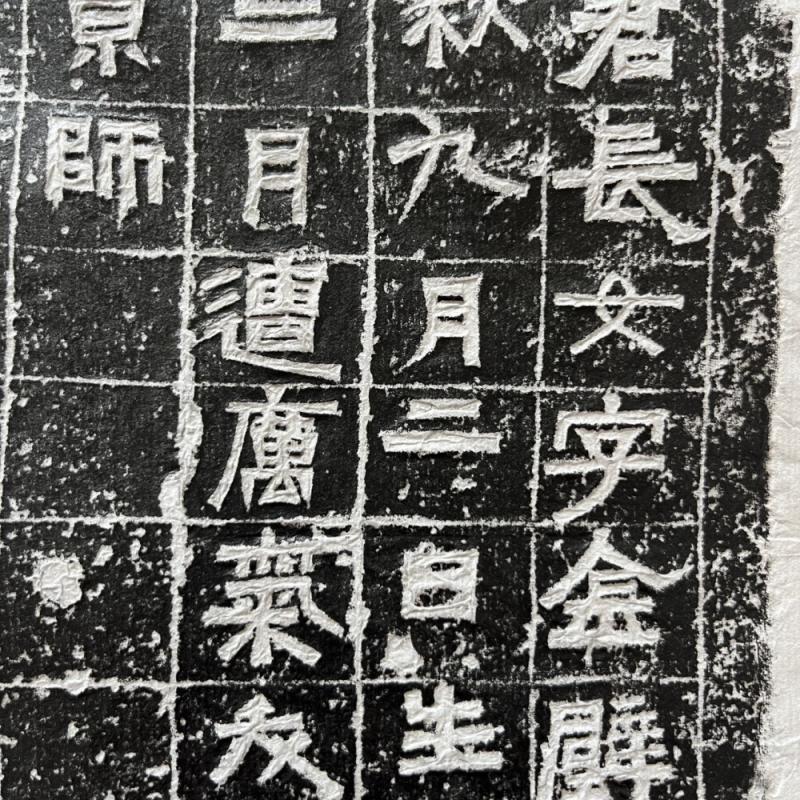 君長女字金
秋九月二日生
三月遭厲氣
京師